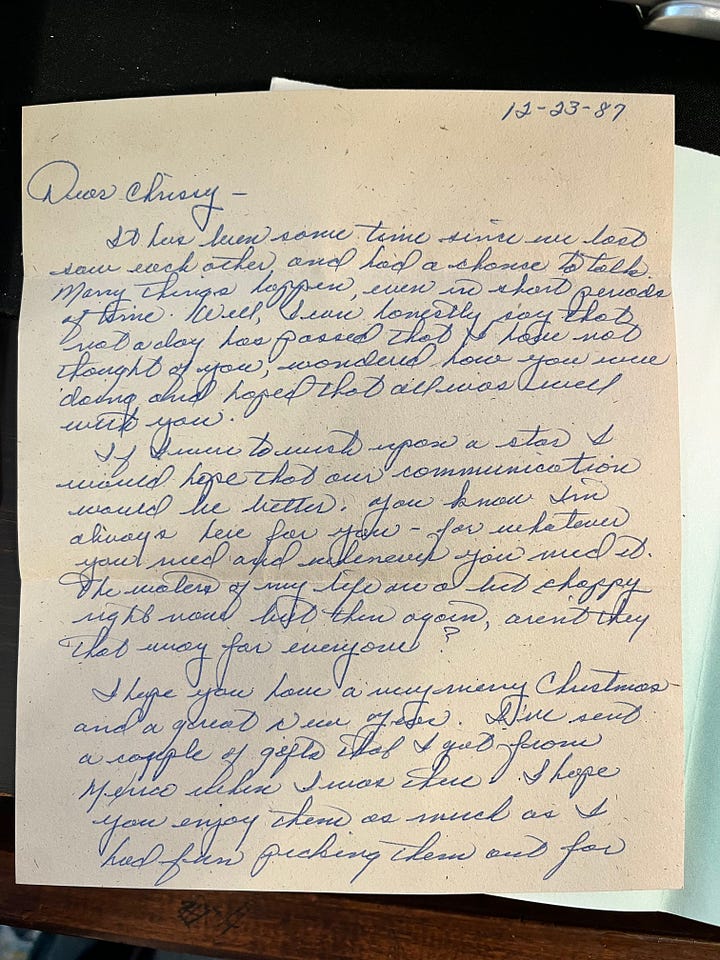 12-23-87
Dear Chrissy -
It has been some time since we last
saw each other and had a chance to talk.
Many things happen, even in short periods
of time. Well, I can honestly say that
not a day has passed that I have not
thought of you, wondered how you were
doing and hoped that all was well
with you.
If I were to wish upon a star I
would hope that our communication
would be better. You know I'm
always here for you - for whatever
you need and whenever you need it.
The waters of my life are a bit choppy
right now but then again, aren't they
that way for everyone?
I hope you have a very merry Christmas
and a great new year. I've sent
a couple of gifts that I got from
Mexico when I was there. I hope
you enjoy them as much as I
had fun picking them out for